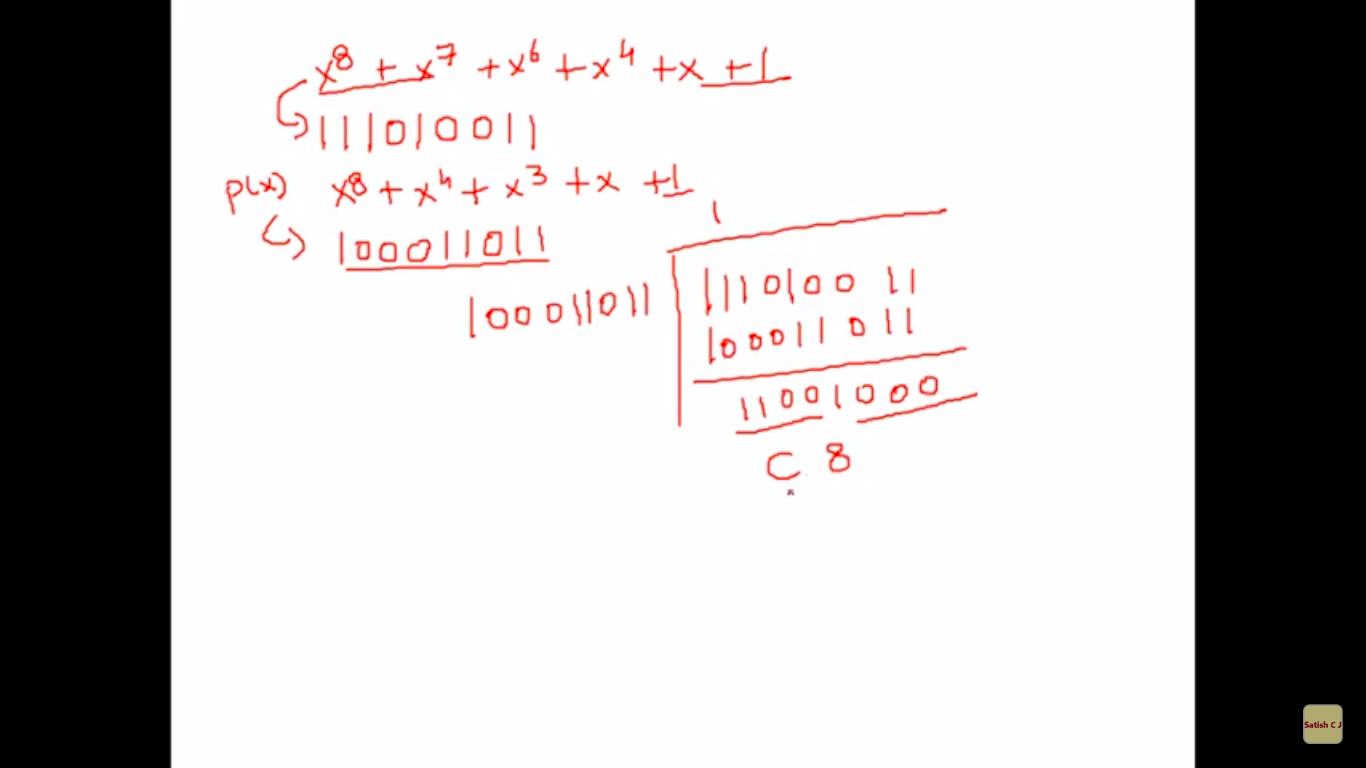 x⁸ + x⁷ + x⁶ + x⁴ + x + 1
111010011
p(x) x⁸ + x⁴ + x³ + x + 1
100011011
1
100011011 111010011
100011011
11001000
C 8
Satish C J